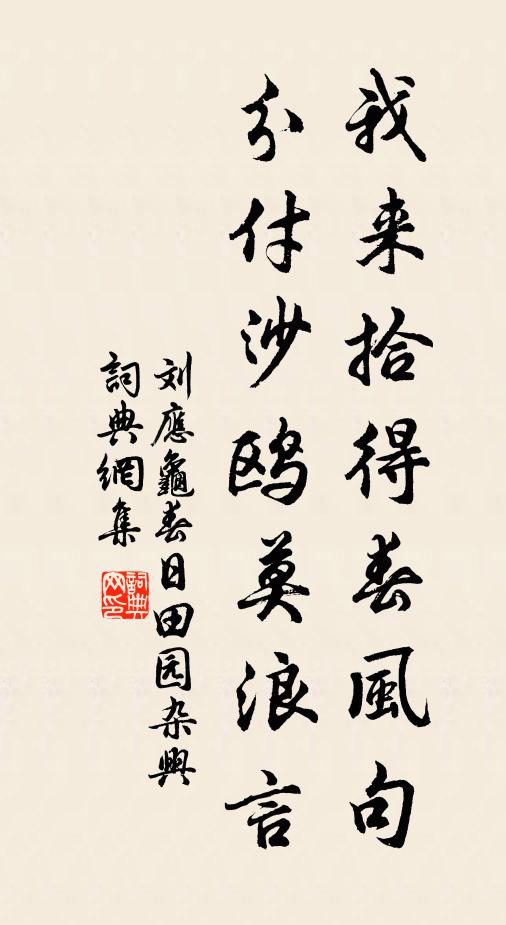 我来拾得春風句
分付沙鸥莫浪言
刘應龜春日田园杂興
詞典網集
詞典网印